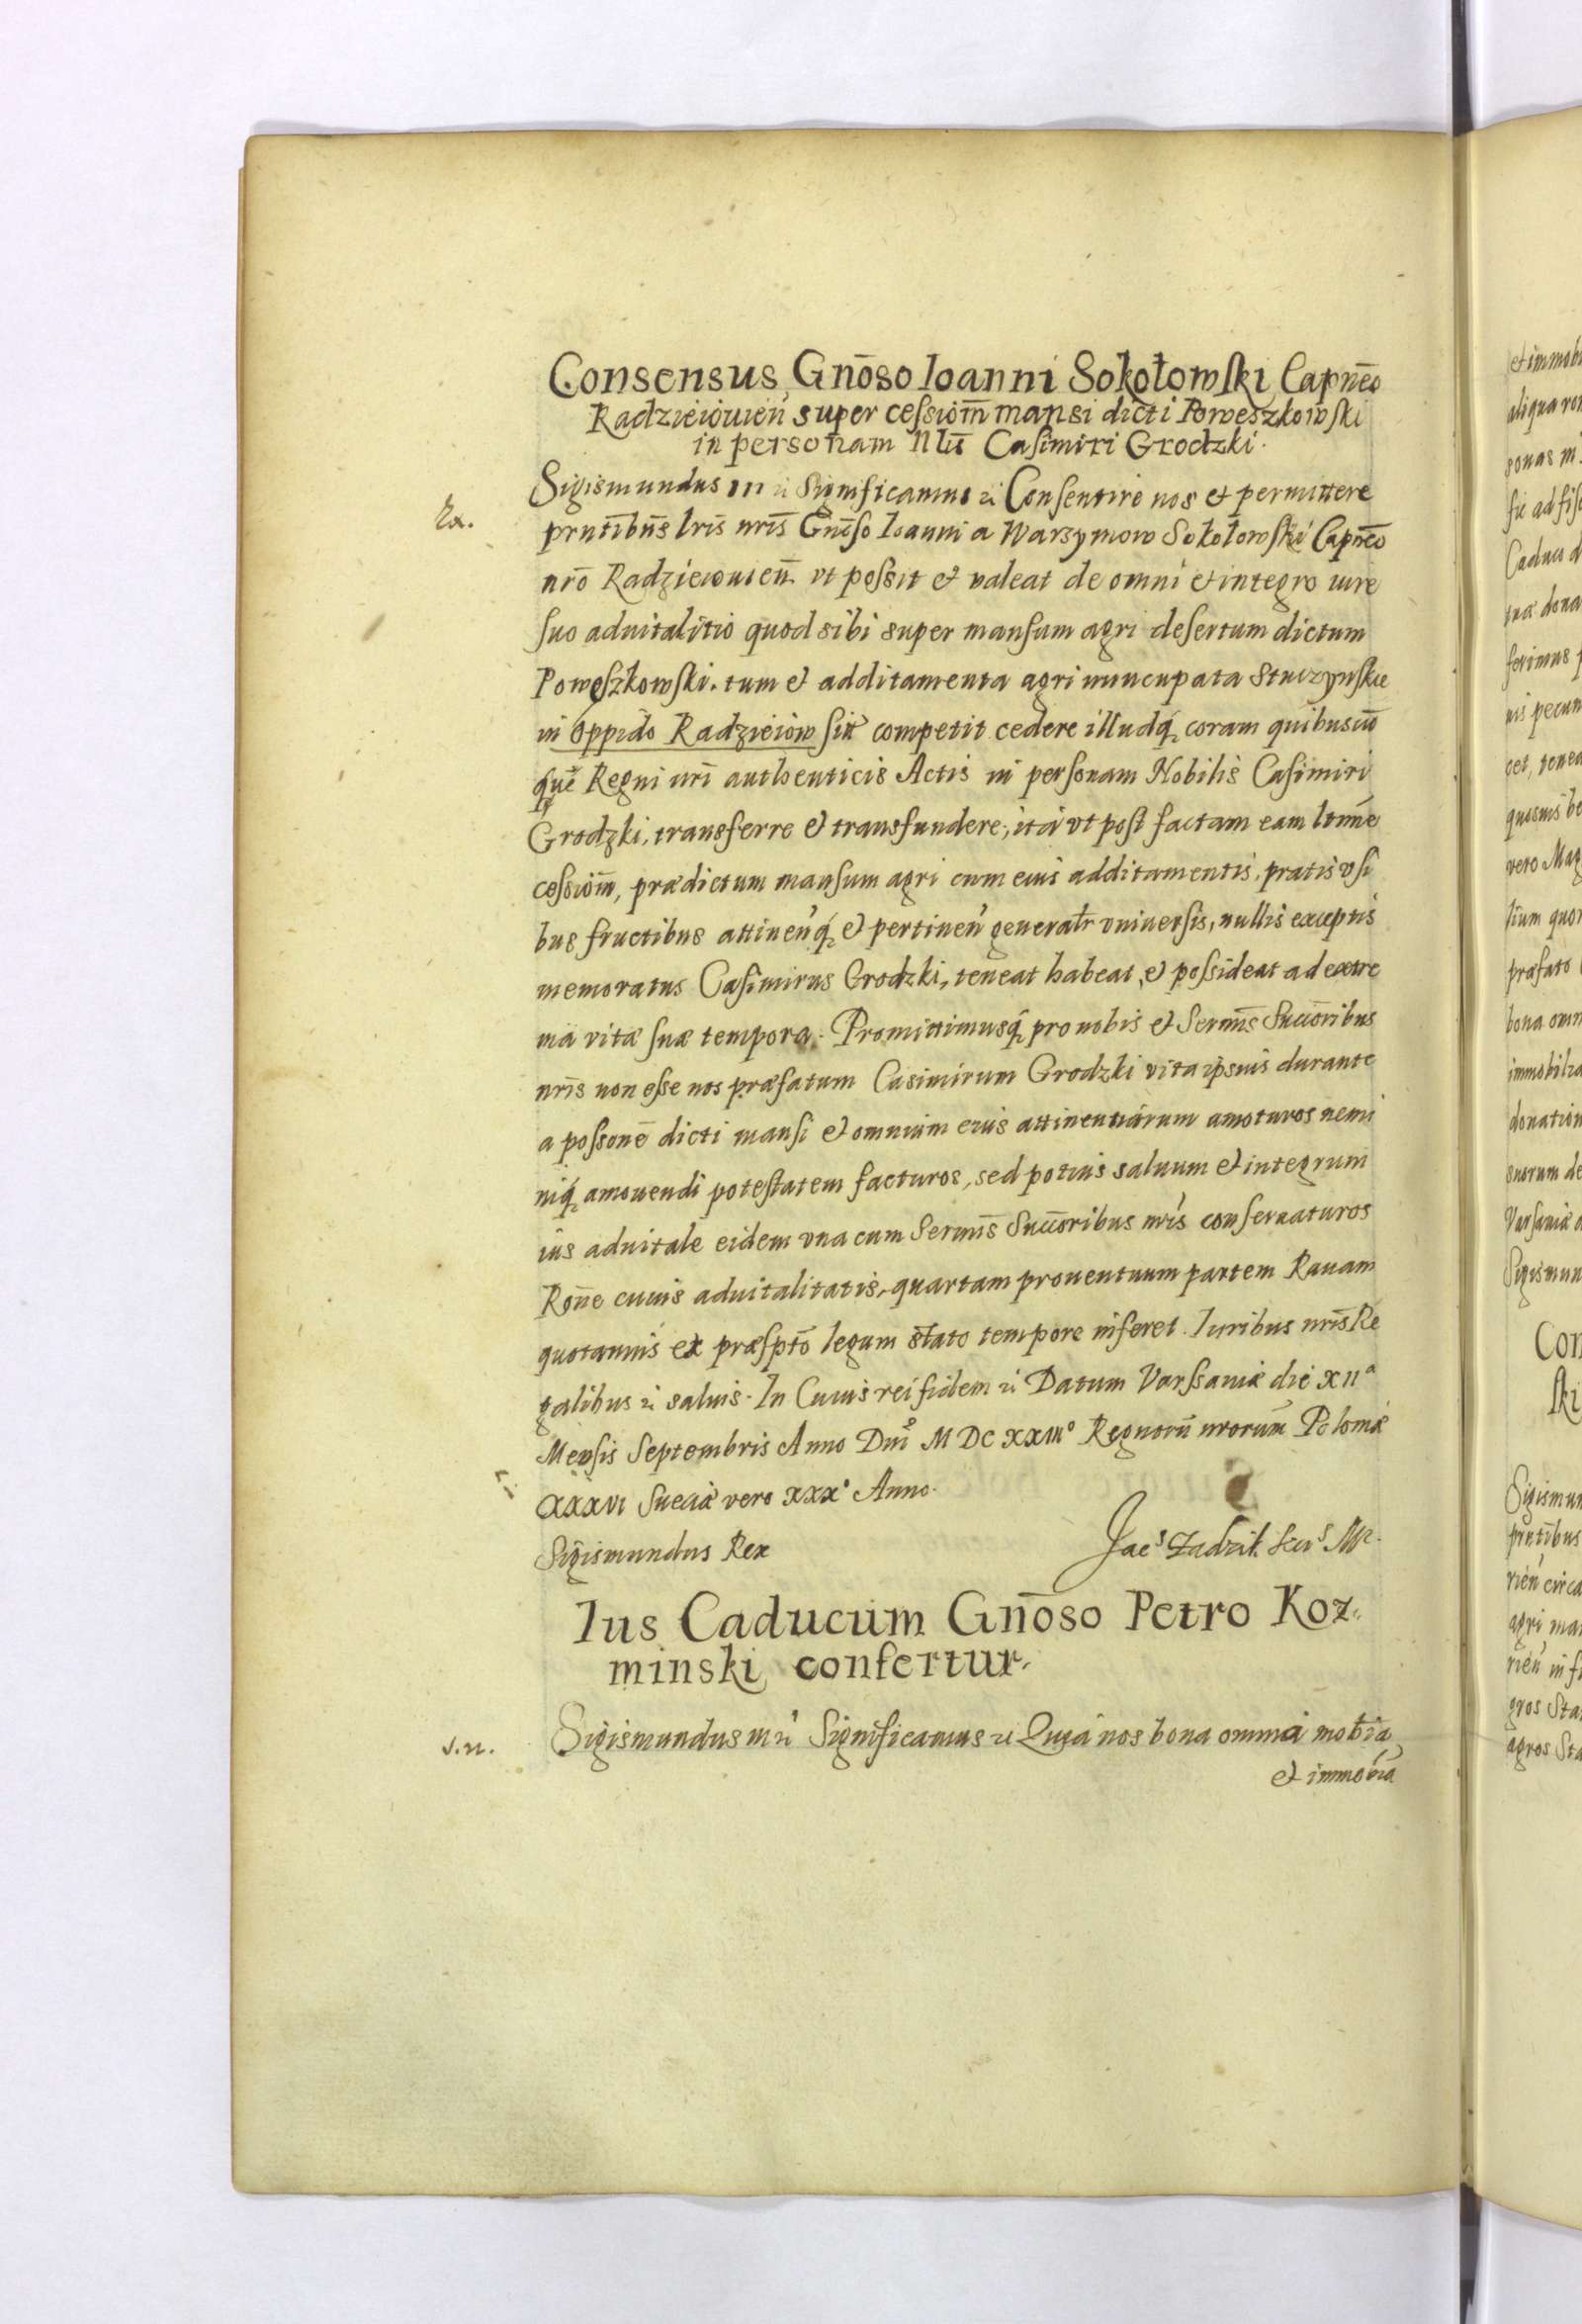 Consensus Gnōso Ioanni Sokołowski Capnēo
Radzieiouien̄ super cessiōm mansi dicti Poweszkowski
in personam Nlis Casimiri Grodzki.
Ex.
Sigismundus III etc Significamus etc Consentire nos et permittere
prntibus lris nris Gnōso Ioanni a Warzymow Sokołowski Capnēo
nrō Radzieiouien̄ vt possit et valeat de omni et integro iure
suo aduitalitio quod sibi super mansum agri desertum dictum
Poweszkowski. tum et additamenta agri nuncupata Stuczynskie
in Oppido Radzieiow sitt competit cedere illudq́ꝫ coram quibuscū
que Regni nri authenticis Actis in personam Nobilis Casimiri
Grodzki, transferre et transfundere, ità vt post factam eam ltīme
cessiōm, prædictum mansum agri cum eius additamentis, pratis vsi
bus fructibus attinen̄q́ꝫ et pertinen̄ generalr vniuersis, nullis exceptis
memoratus Casimirus Grodzki, teneat habeat, et possideat ad extre
ma vitæ suæ tempora. Promittimusq́ꝫ pro nobis et Sermīs Succōribus
nrīs non esse nos præfatum Casimirum Grodzki vita ipsius durante
a possonē dicti mansi et omnium eius attinentiarum amoturos nemi
niq́ꝫ amouendi potestatem facturos, sed potius saluum et integrum
ius aduitale eidem vna cum Sermīs Succōribus nrīs conseruaturos
Rōne cuius aduitalitatis, quartam prouentuum partem Rauam
quotannis ex præsptō legum stato tempore inferet. Iuribus nrīs Re
galibus etc saluis. In Cuius rei fidem etc Datum Varsauiæ die XIIª
Mensis Septembris Anno Dnī M DC XXIIIº Regnorū nrorum Poloniæ
XXXVI Sueciæ vero XXXº Anno.
Sigismundus Rex
Jac⁸ Zadzik Secr⁸ Mr.
Ius Caducum Gnōso Petro Koz-
minski confertur.
s.n.
Sigismundus III etc Significamus etc Quia nos bona omnia mobīa
et immobīa